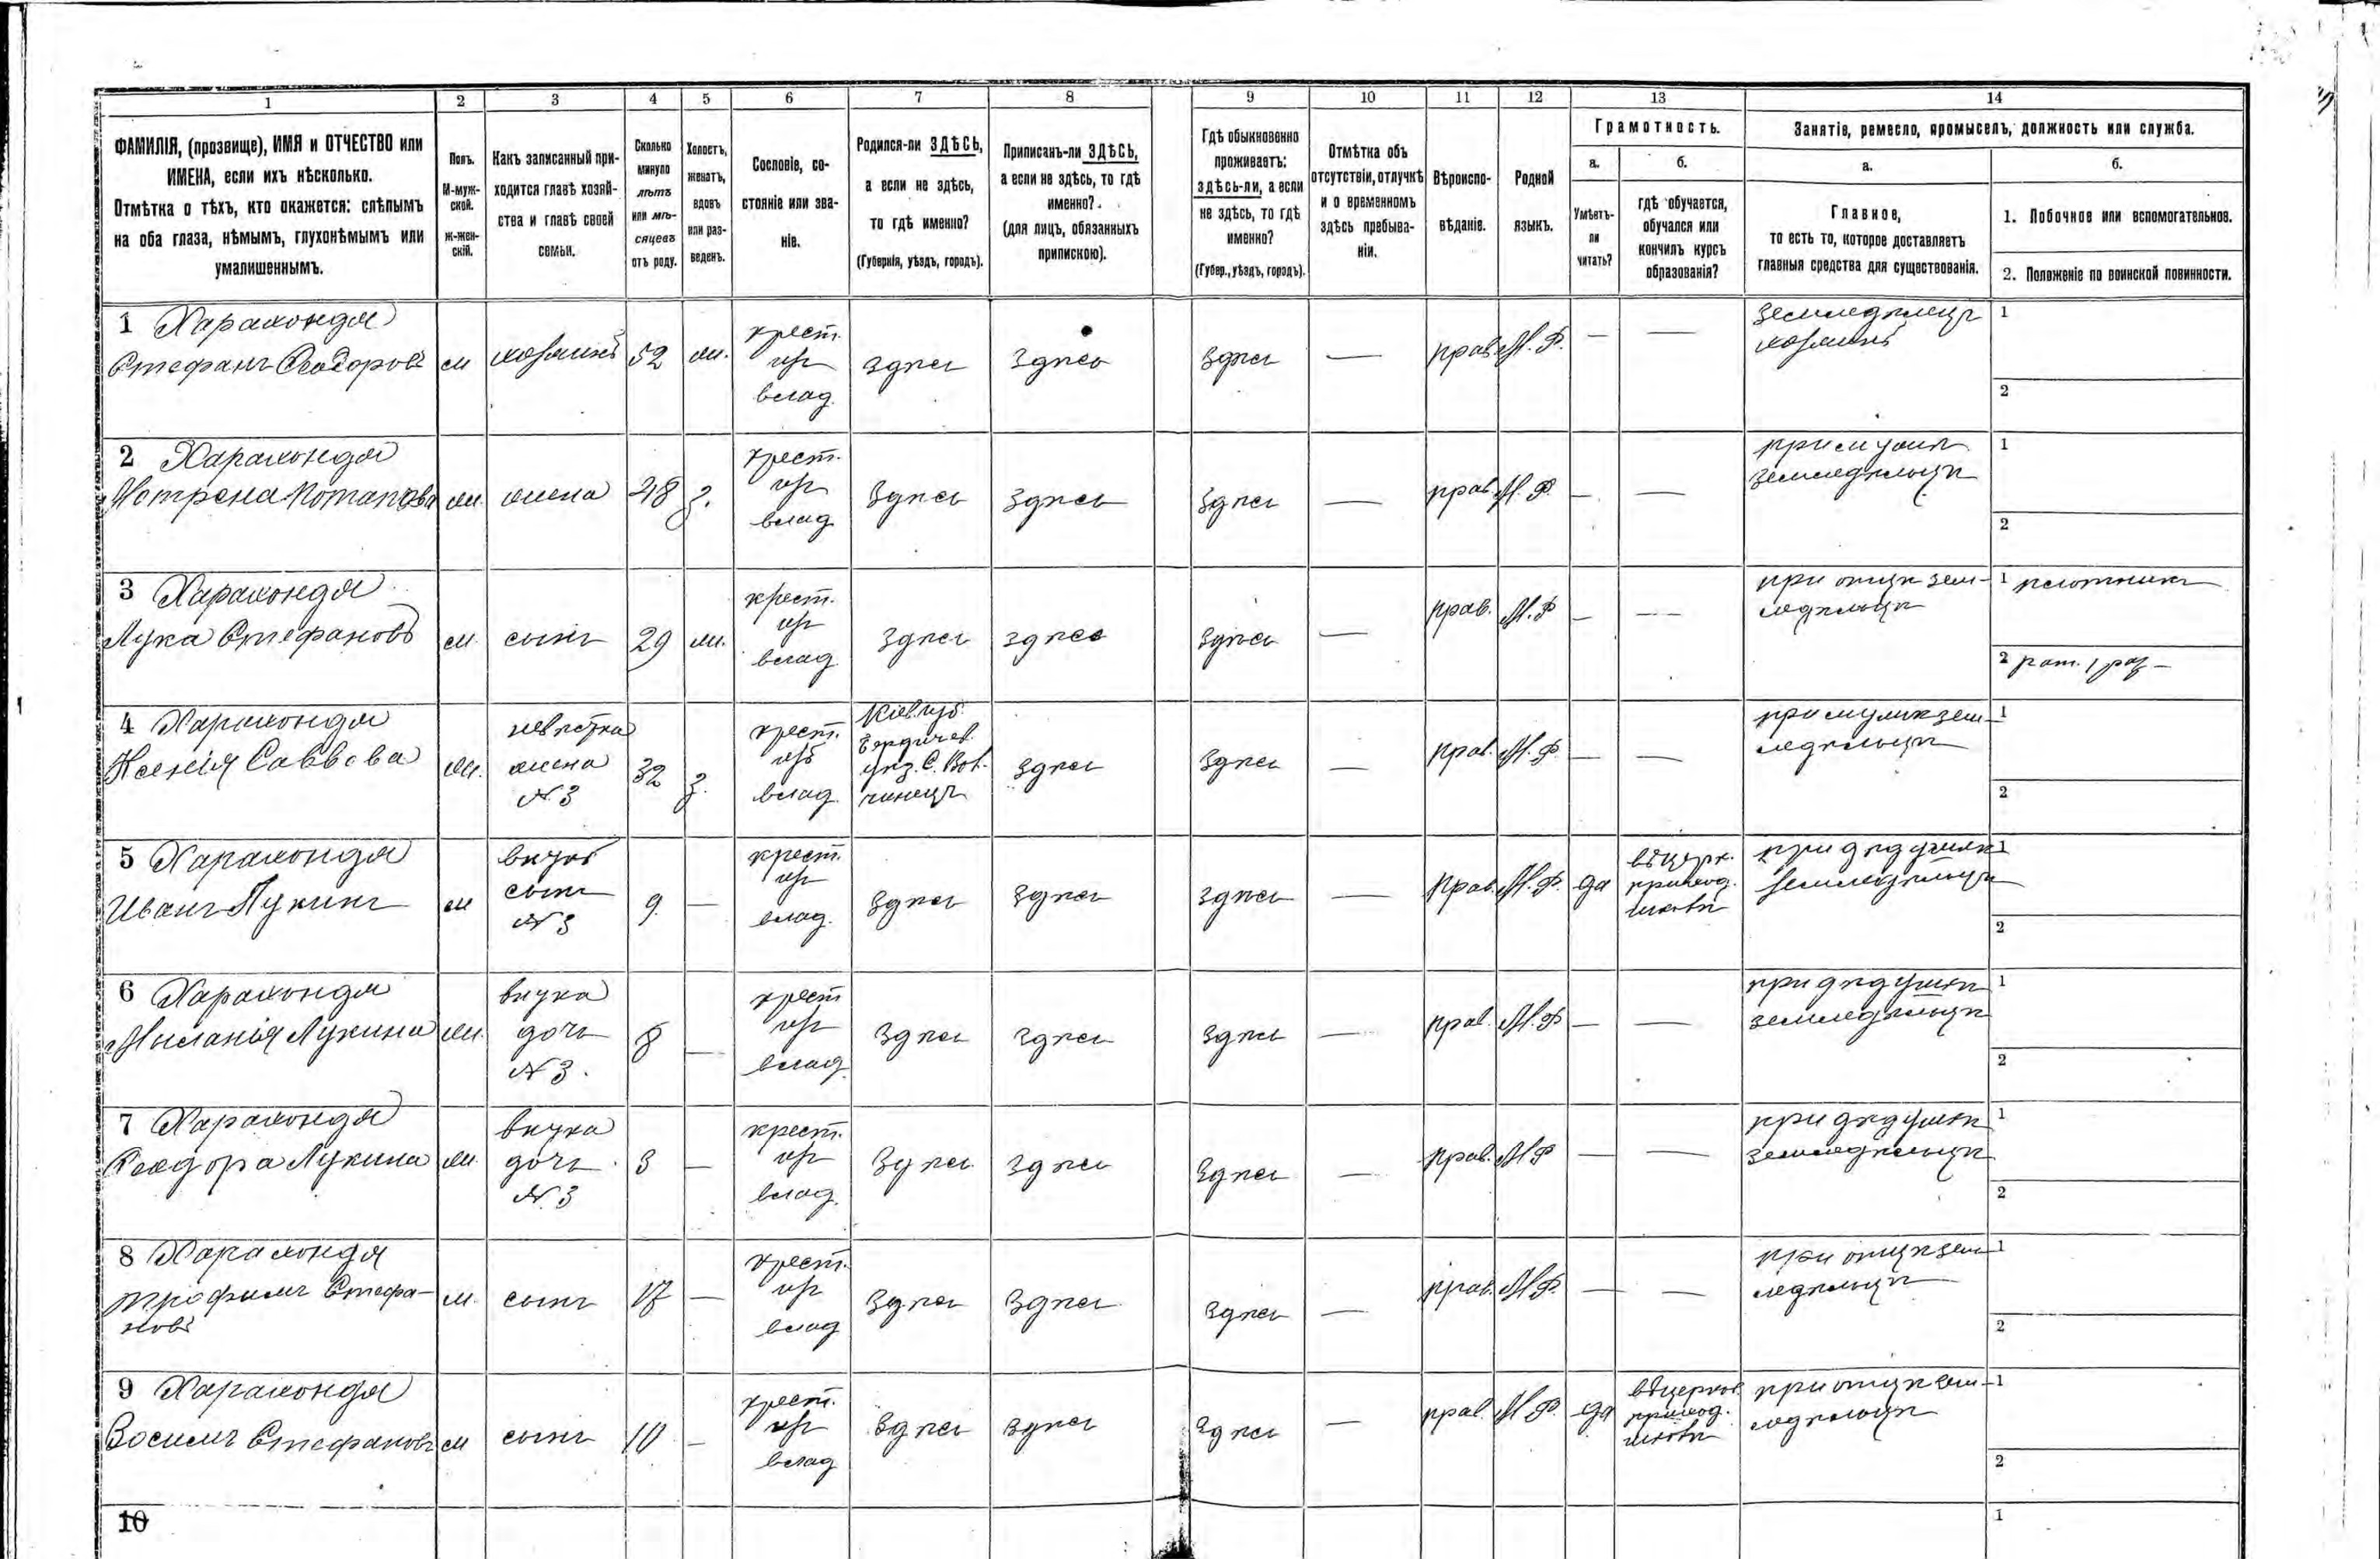 1 2 3 4 5 6 7 8 9 10 11 12 13 14
ФАМИЛІЯ, (прозвище), ИМЯ и ОТЧЕСТВО или
ИМЕНА, если ихъ нѣсколько.
Отмѣтка о тѣхъ, кто окажется: слѣпымъ
на оба глаза, нѣмымъ, глухонѣмымъ или
умалишеннымъ.
Полъ.
М-муж-
ской.
Ж-жен-
скій.
Какъ записанный при-
ходится главѣ хозяй-
ства и главѣ своей
семьи.
Сколько
минуло
лѣтъ
или мѣ-
сяцевъ
отъ роду.
Холостъ,
женатъ,
вдовъ
или раз-
веденъ.
Сословіе, со-
стояніе или зва-
ніе.
Родился-ли ЗДѢСЬ,
а если не здѣсь,
то гдѣ именно?
(Губернія, уѣздъ, городъ).
Приписанъ-ли ЗДѢСЬ,
а если не здѣсь, то гдѣ
именно?
(для лицъ, обязанныхъ
припискою).
Гдѣ обыкновенно
проживаетъ:
здѣсь-ли, а если
не здѣсь, то гдѣ
именно?
(Губер., уѣздъ, городъ).
Отмѣтка объ
отсутствіи, отлучкѣ
и о временномъ
здѣсь пребыва-
ніи.
Вѣроиспо-
вѣданіе.
Родной
языкъ.
Грамотность.
а.
Умѣетъ-
ли
читать?
б.
гдѣ обучается,
обучался или
кончилъ курсъ
образованія?
Занятіе, ремесло, промыселъ, должность или служба.
а.
Главное,
то есть то, которое доставляетъ
главныя средства для существованія.
б.
1. Побочное или вспомогательное.
2. Положеніе по воинской повинности.
1 Харахондя
Стефанъ Ѳеодоровъ
м
хозяинъ
52
ж.
крест.
изъ
влад.
здѣсь
здѣсь
здѣсь
—
прав.
М. Р.
—
—
земледѣлецъ
хозяинъ
1
2
2 Харахондя
Потапова
ж.
жена
48
з.
крест.
изъ
влад.
здѣсь
здѣсь
здѣсь
—
прав.
М. Р.
—
—
при мужѣ
земледѣльцѣ
1
2
3 Харахондя
Лука Стефановъ
м.
сынъ
29
ж.
крест.
изъ
влад.
здѣсь
здѣсь
здѣсь
—
прав.
М. Р.
—
—
при отцѣ зем-
ледѣльцѣ
1 плотникъ
2 рат. 1 раз
4 Харахондя
Ксенія Саввова
ж.
невѣстка
жена
№ 3
32
з.
крест.
изъ
влад.
Кіев. губ.
Бердичев.
уѣз. С. Вов-
чинецъ
здѣсь
здѣсь
—
прав.
М. Р.
—
—
при мужѣ зем-
ледѣльцѣ
1
2
5 Харахондя
Иванъ Лукинъ
м
внукъ
сынъ
№ 3
9.
—
крест.
изъ
влад.
здѣсь
здѣсь
здѣсь
—
прав.
М. Р.
да
въ церк.
приход.
школѣ
при дѣдушкѣ
земледѣльцѣ
1
2
6 Харахондя
Лукина
ж.
внука
дочь
№ 3.
8
—
крест
изъ
влад.
здѣсь
здѣсь
здѣсь
—
прав.
М. Р
—
—
при дѣдушкѣ
земледѣльцѣ
1
2
7 Харахондя
Ѳеодора Лукина
ж.
внука
дочь
№ 3
3
—
крест.
изъ
влад.
здѣсь
здѣсь
здѣсь
—
прав.
М Р
—
—
при дѣдушкѣ
земледѣльцѣ
1
2
8 Харахондя
Трофимъ Стефа-
новъ
м.
сынъ
17
—
крест.
изъ
влад
здѣсь
здѣсь
здѣсь
—
прав.
М. Р.
—
—
при отцѣ зем
ледѣльцѣ
1
2
9 Харахондя
Стефановъ
м
сынъ
10
—
крест.
изъ
влад
здѣсь
здѣсь
здѣсь
—
прав.
М. Р.
да
въ церков.
приход.
школѣ
при отцѣ зем-
ледѣльцѣ
1
2
10
1